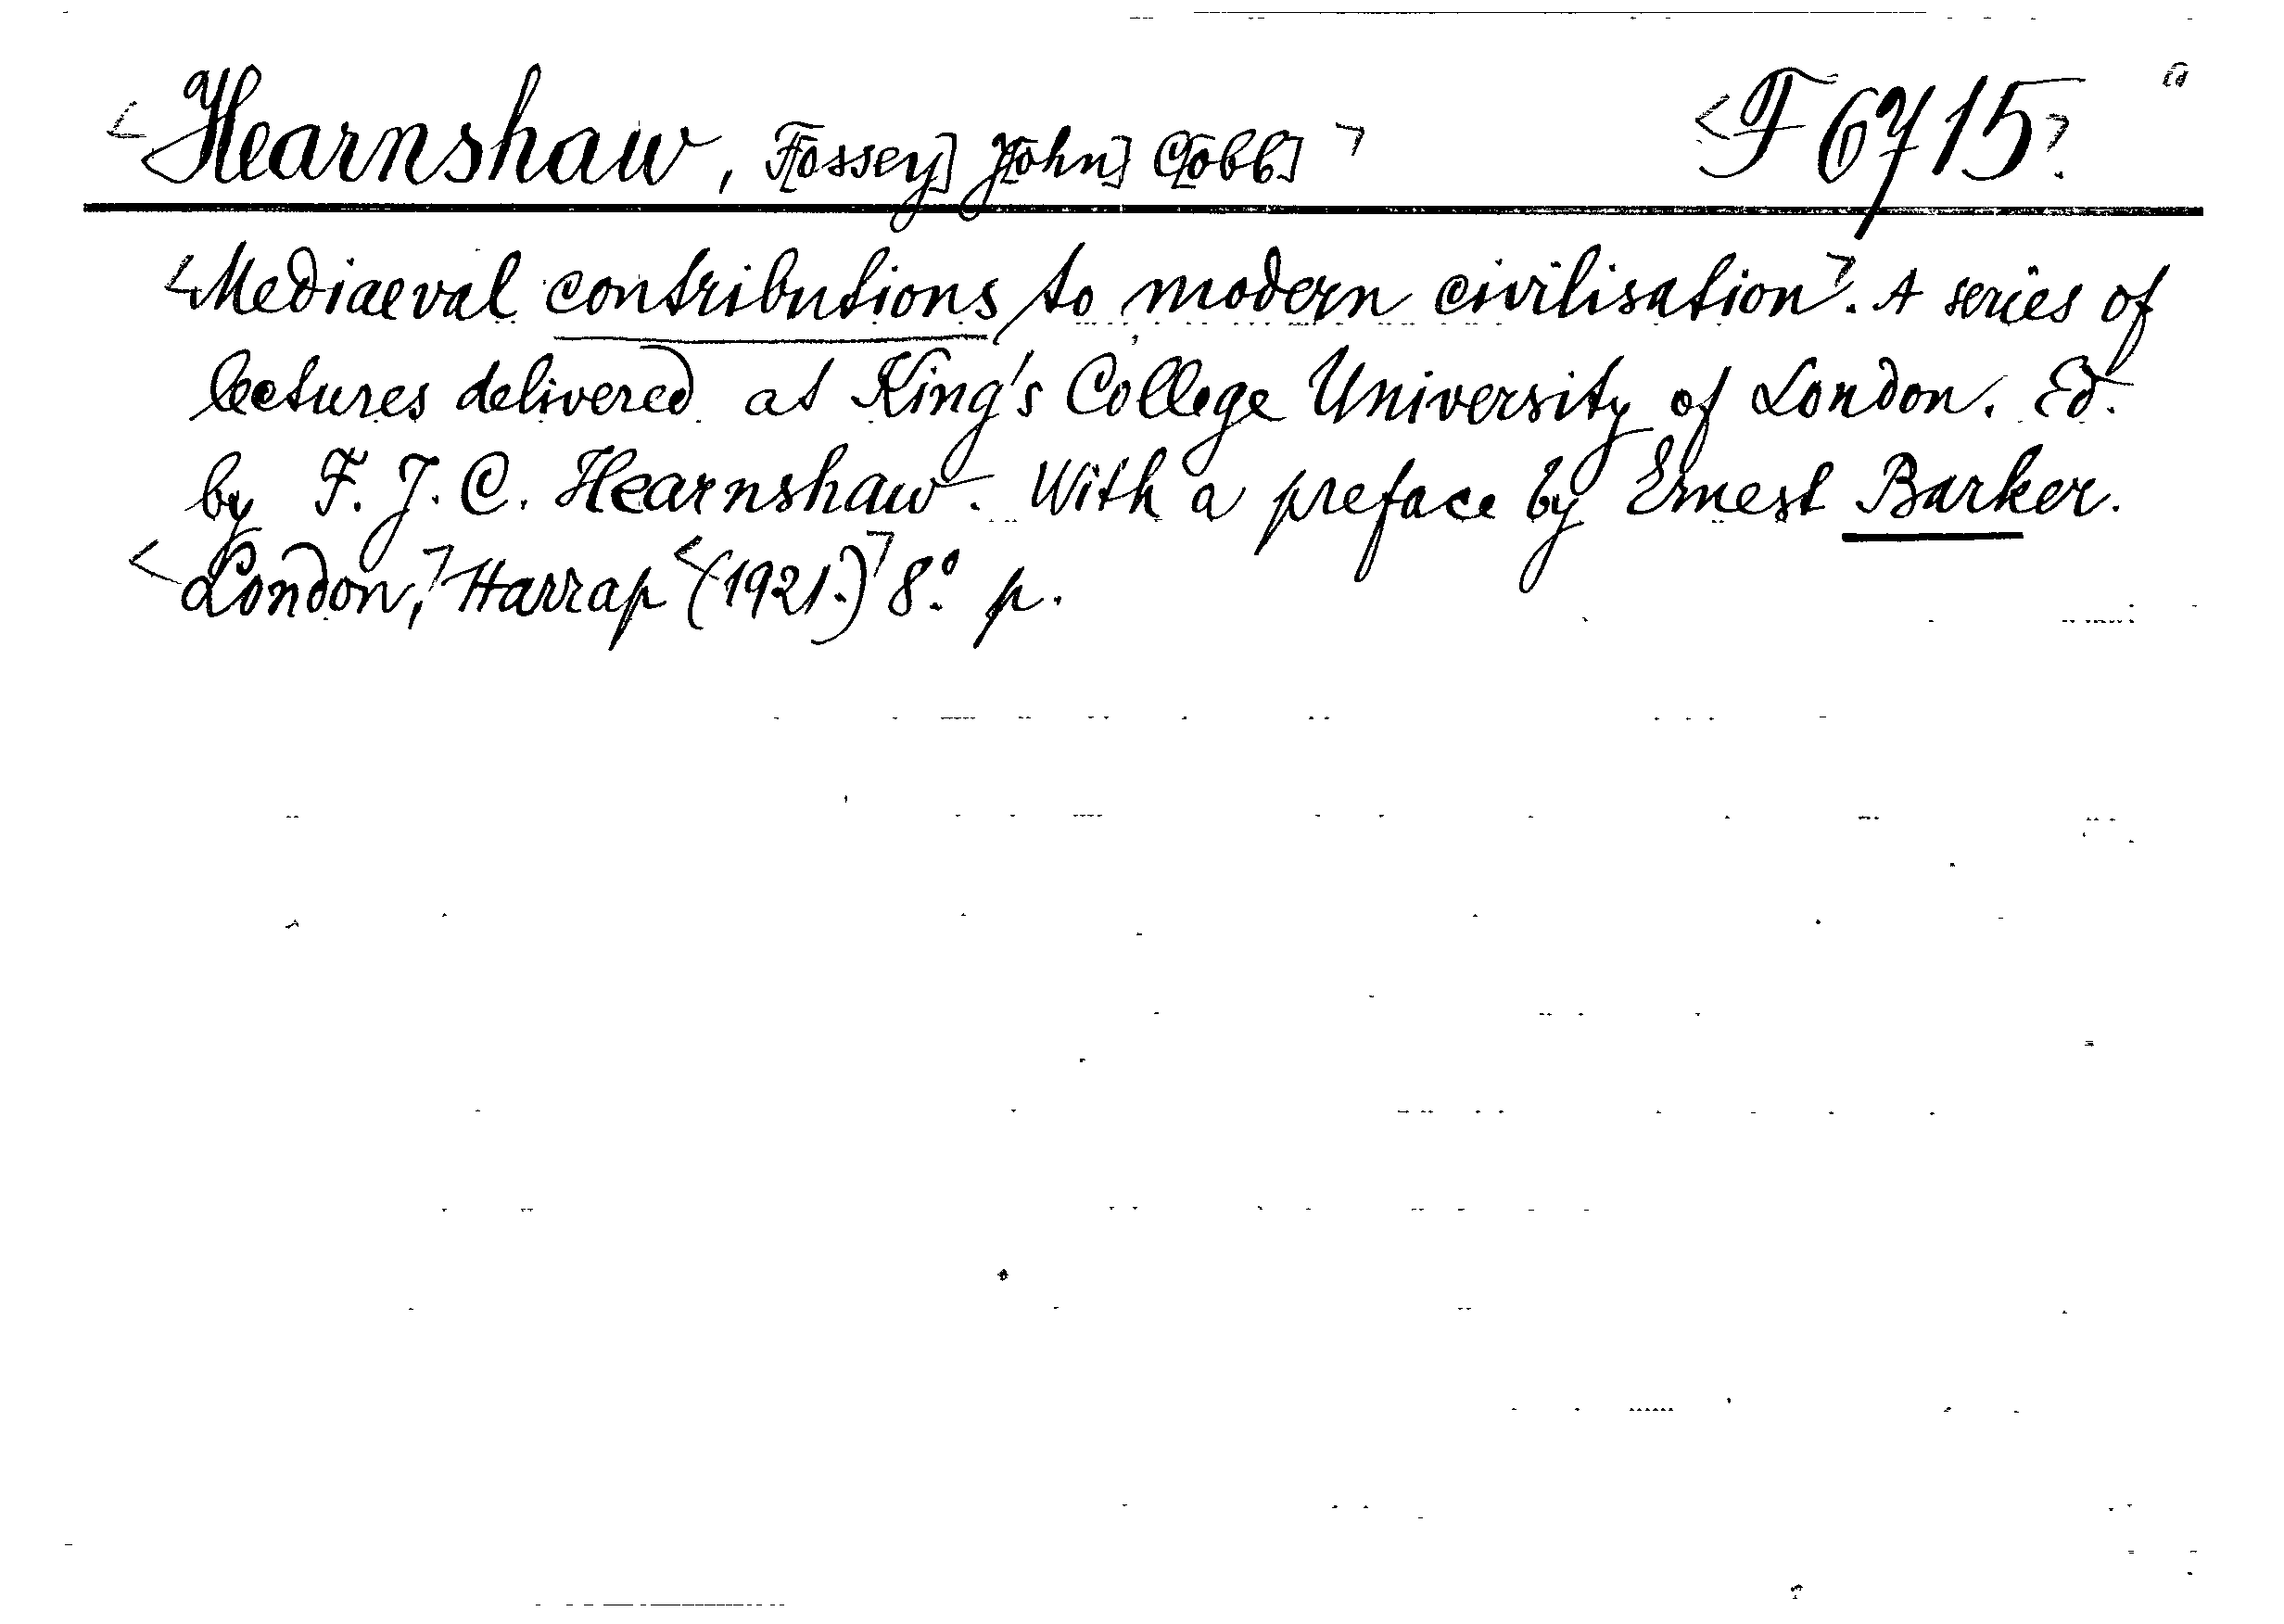 <Hearnshaw, F[ossey] J[ohn] C[obb]> <F 6715>.
<Mediaeval contributions to modern civilisation>. A series of
lectures delivered at King's College University of London. Ed.
by F. J. C. Hearnshaw. With a preface by Ernest Barker.
<London,> Harrap <(1921.)> 8º. p.